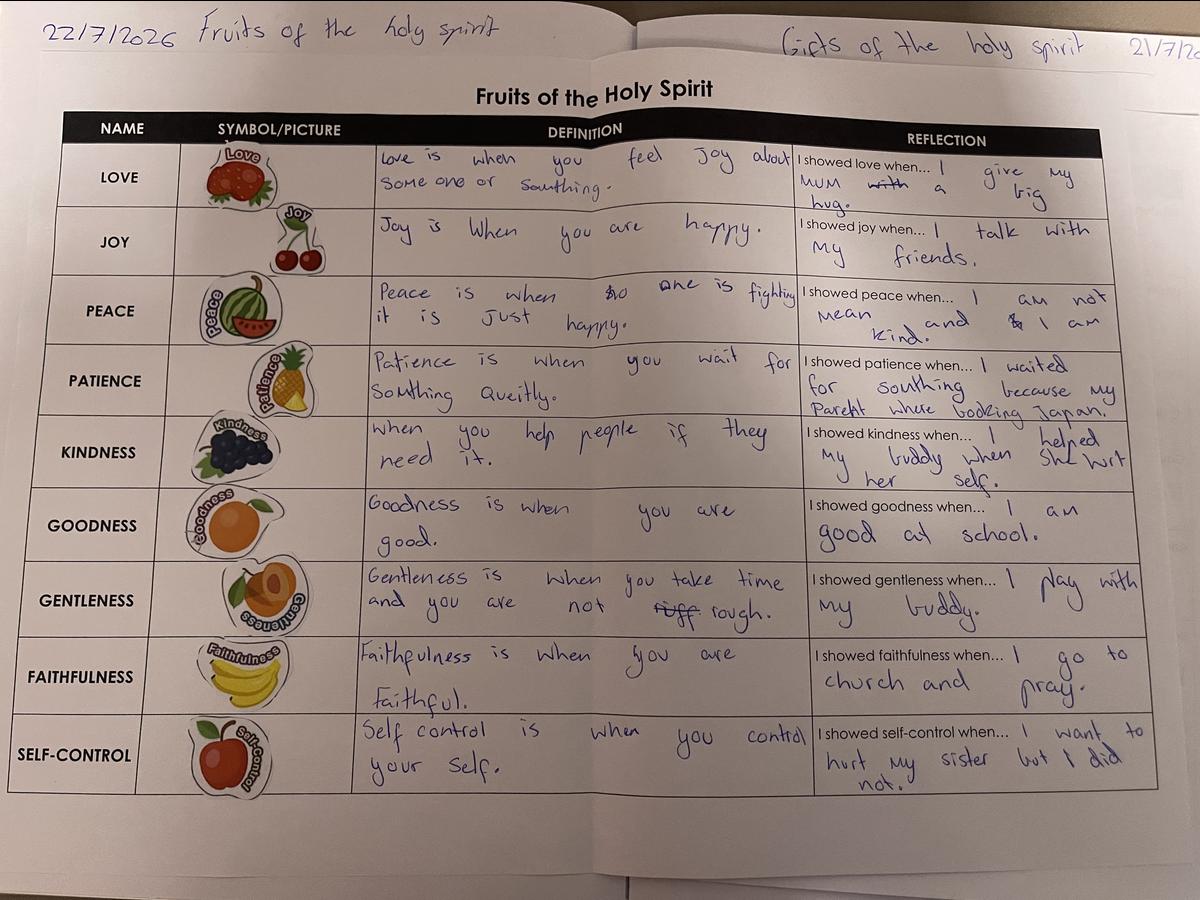 22/7/2026 Fruits of the holy spirit
Gifts of the holy spirit 21/7/20
Fruits of the Holy Spirit
NAME SYMBOL/PICTURE DEFINITION REFLECTION
LOVE
Love
Love is when you feel Joy about
Some one or Somthing.
I showed love when... I give my
MUM with a big
hug.
JOY
Joy
Joy is When you are happy.
I showed joy when... I talk with
My friends.
PEACE
Peace
Peace is when no one is fighting
it is Just happy.
I showed peace when... I am not
Mean and I am
Kind.
PATIENCE
Patience
Patience is when you wait for
Somthing Queitly.
I showed patience when... I waited
for somthing because my
Parent where booking Japan.
KINDNESS
Kindness
when you help people if they
need it.
I showed kindness when... I helped
My buddy when She hurt
her self.
GOODNESS
Goodness
Goodness is when you are
good.
I showed goodness when... I am
good at school.
GENTLENESS
Gentleness
Gentleness is when you take time
and you are not riff rough.
I showed gentleness when... I play with
My buddy.
FAITHFULNESS
Faithfulness
Faithfulness is when you are
Faithful.
I showed faithfulness when... I go to
church and pray.
SELF-CONTROL
Self-Control
Self control is when you control
your self.
I showed self-control when... I want to
hurt My sister but I did
not.